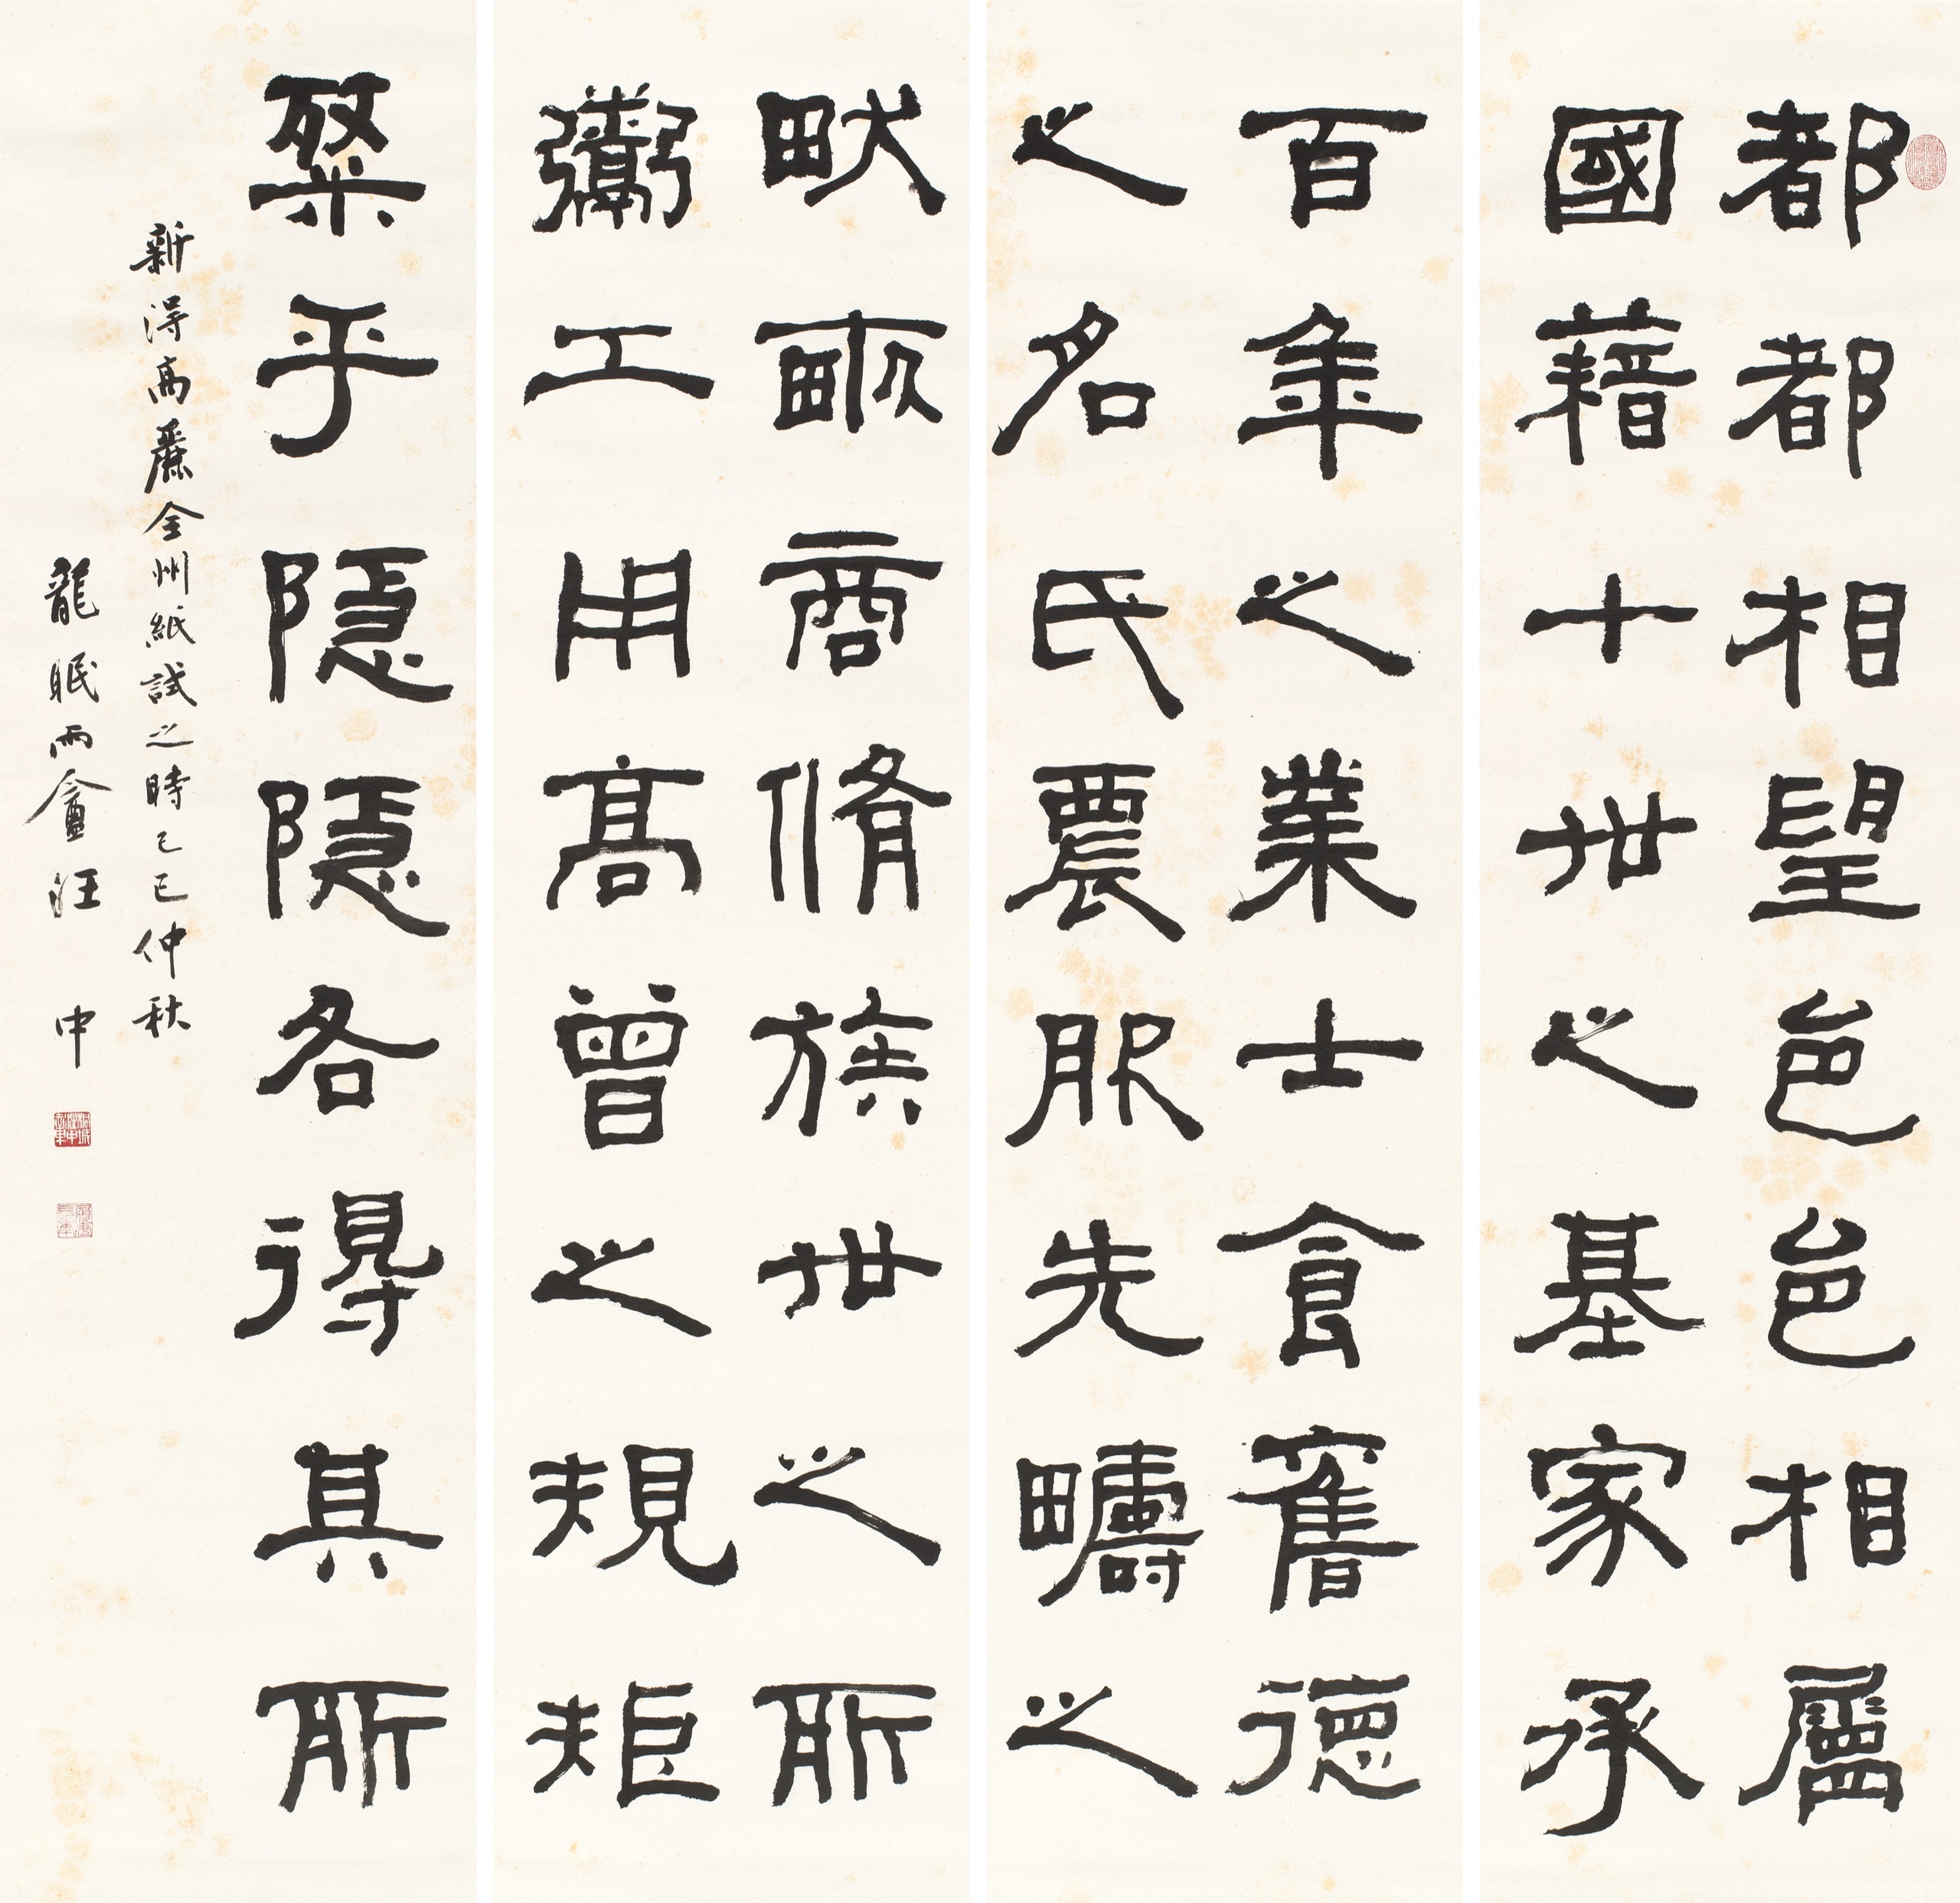 都都相望邑邑相屬
國藉十世之基家承
百年之業士食舊德
之名氏農服先疇之
畎畝商脩族世之所
鬻工用高曾之規矩
粲乎隱隱各得其所
新得高麗全州紙試之時己巳仲秋
龍眠雨盦汪申